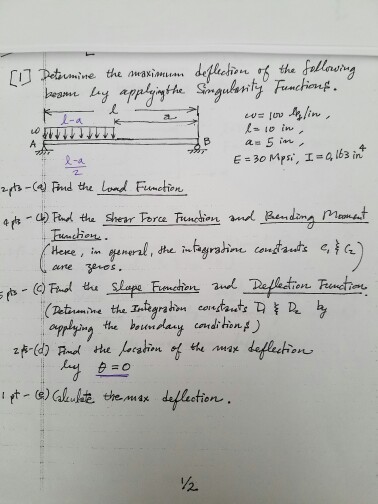 [1] Determine the maximum deflection of the following
beam by applying the Singularity Functions.
l
l-a
a
w
A
B
l-a
2
w = 100 lb/in,
l = 10 in,
a = 5 in,
E = 30 Mpsi, I = 0.163 in4
2 pts - (a) Find the Load Function
4 pts - (b) Find the Shear Force Function and Bending Moment
Function.
(Here, in general, the integration constants C1 & C2
are zeros.)
5 pts - (c) Find the Slope Function and Deflection Function
(Determine the Integration constants D1 & D2 by
applying the boundary conditions)
2 pts - (d) Find the location of the max deflection
by θ = 0
1 pt - (e) Calculate the max deflection.
1/2